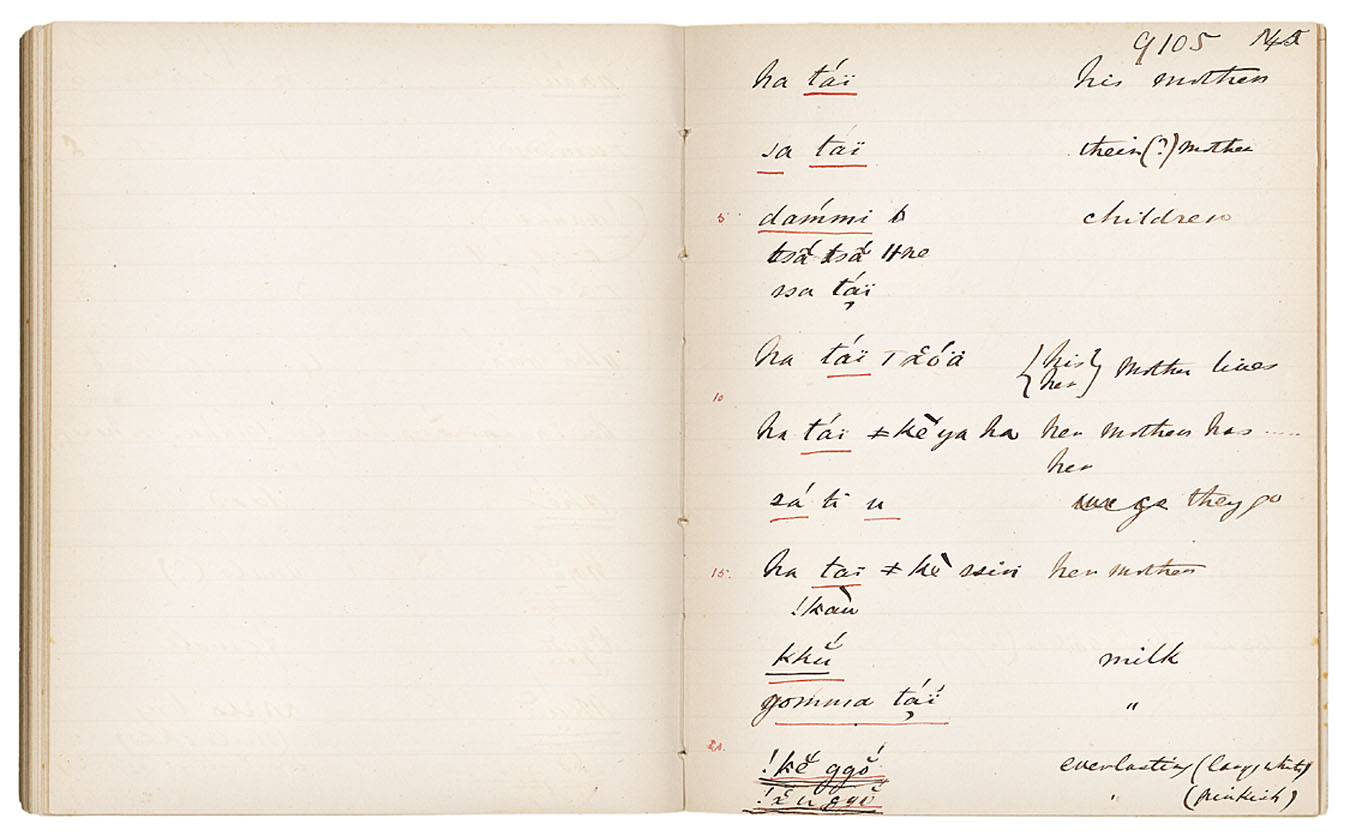 9105
ha táï his mother
sa táï their(?) mother
5. dámmi children
tsá tsá ǁne
ssa táï
ha táï {his her} mother lives
10
ha táï ǂkĕ̀ ya ha her mother has .....
her
sá ti u they go
15. ha taï ǂkè ssin her mother
!kàu
kkú milk
gomma táï "
20. !kĕ ggŏ́ everlasting (large white)
" (pinkish)